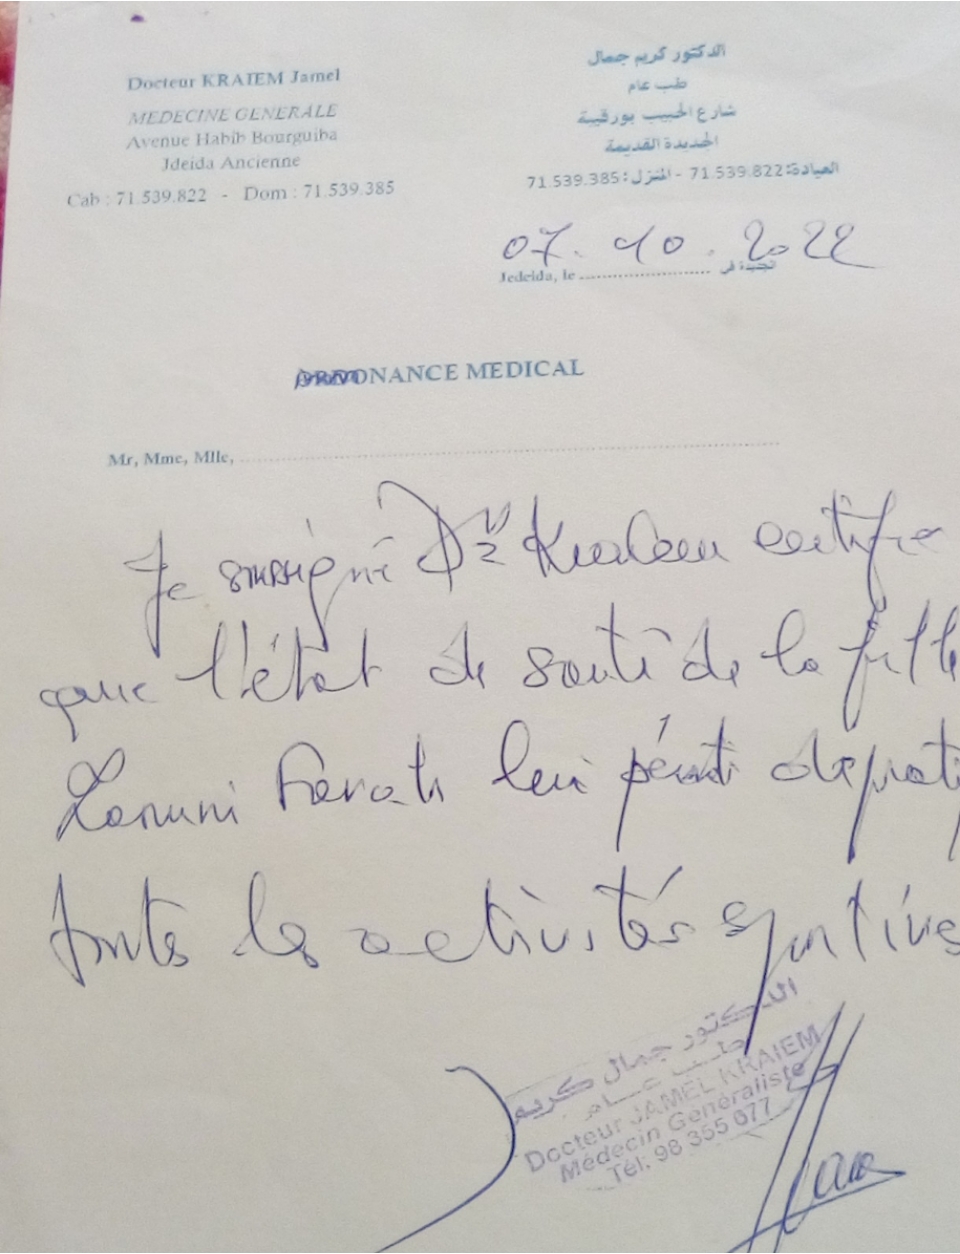 Docteur KRAIEM Jamel
MEDECINE GENERALE
Avenue Habib Bourguiba
Jdeida Ancienne
Cab : 71.539.822 - Dom : 71.539.385
الدكتور كريم جمال
طب عام
شارع الحبيب بورقيبة
الجديدة القديمة
العيادة: 71.539.822 - المنزل: 71.539.385
07. 10. 2022
Jedeida, le .......... الجديدة في
ORDONANCE MEDICAL
Mr, Mme, Mlle, ..........
Je soussigné Dr Kraiem certifie
que l'état de santé de la fille
Farah lui permet de prati
toutes les activités sportives
الدكتور جمال كريم
طب عام
Docteur JAMEL KRAIEM
Médecin Généraliste
Tél: 98 355 677